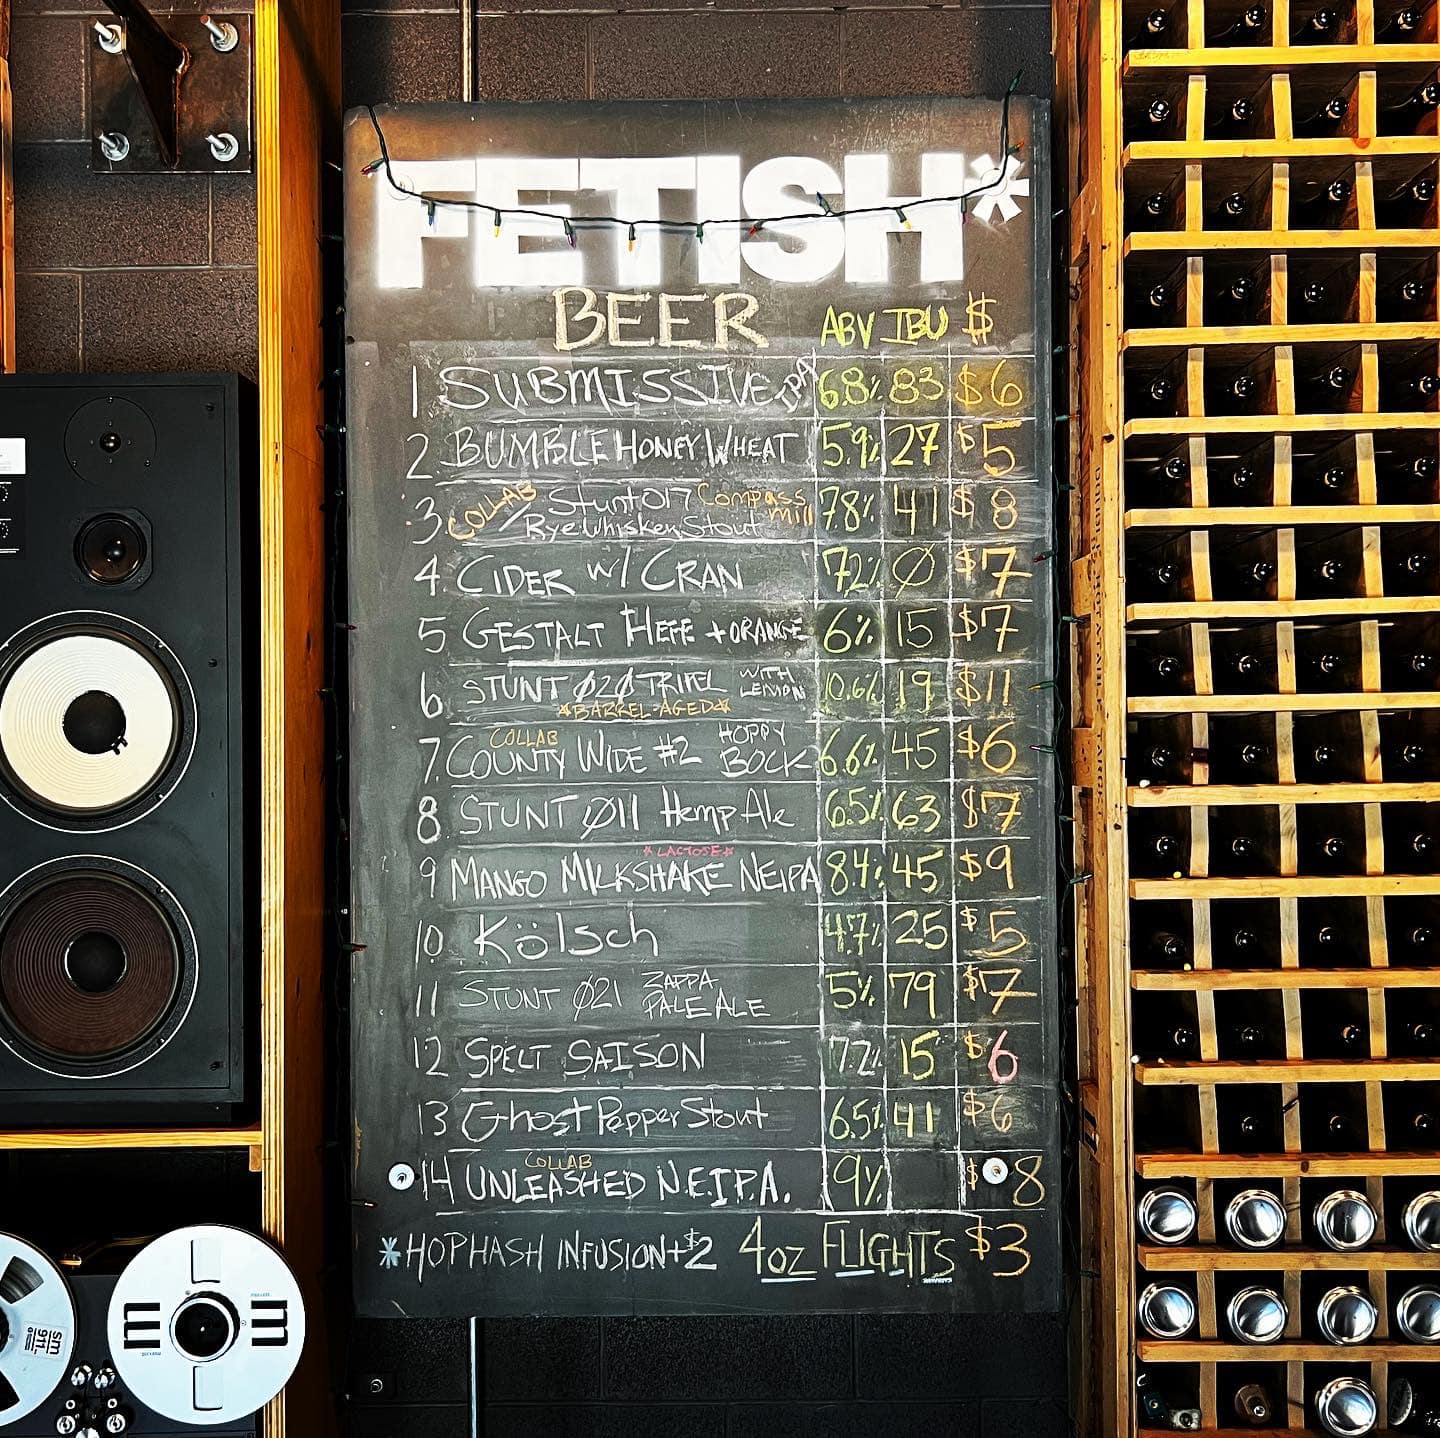 FETISH*
BEER ABV IBU $
1 SUBMISSIVE IPA 6.8% 83 $6
2 BUMBLE HONEY WHEAT 5.9% 27 $5
3 COLLAB / Stunt 017 Compass mill
Rye Whiskey Stout 7.8% 41 $8
4. CIDER W/ CRAN 7.2% Ø $7
5 GESTALT HEFE + ORANGE 6% 15 $7
6 STUNT Ø2Ø TRIPEL WITH LEMON 10.6% 19 $11
*BARREL-AGED*
COLLAB
7. COUNTY WIDE #2 HOPPY BOCK 6.6% 45 $6
8 STUNT Ø11 Hemp Ale 6.5% 63 $7
*LACTOSE*
9 MANGO MILKSHAKE NEIPA 8.4% 45 $9
10 Kölsch 4.7% 25 $5
11 STUNT Ø21 ZAPPA PALE ALE 5% 79 $7
12 SPELT SAISON 7.2% 15 $6
13 Ghost Pepper Stout 6.5% 41 $6
COLLAB
14 UNLEASHED N.E.I.P.A. 9% $8
*HOPHASH INFUSION +$2 4oz FLIGHTS $3
sm
911
m
m